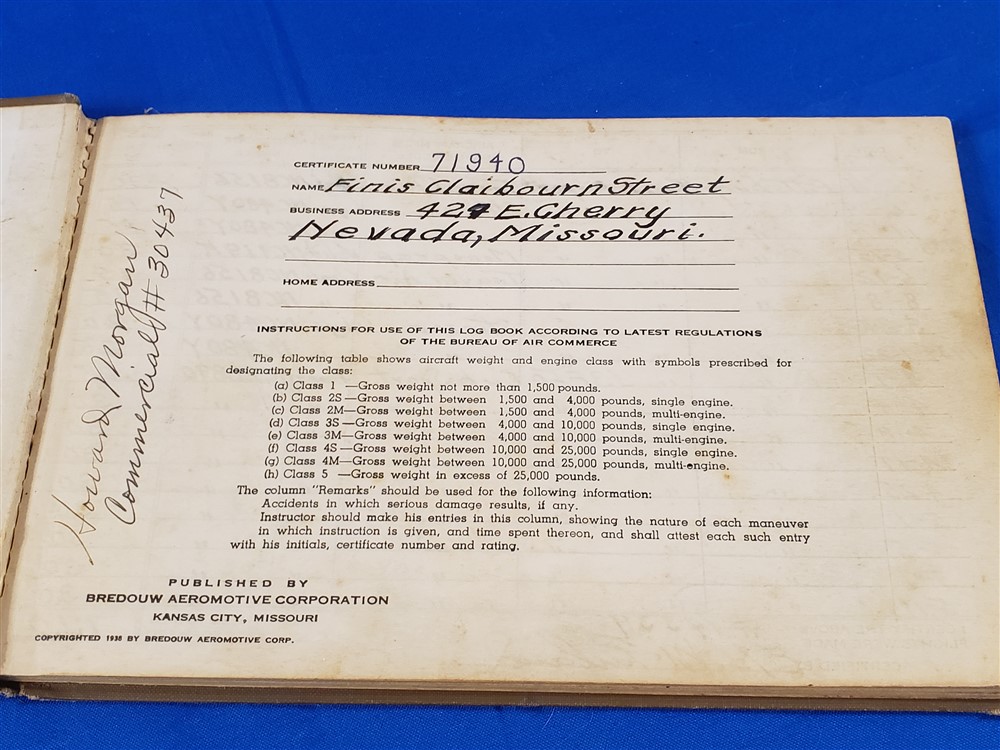 CERTIFICATE NUMBER 71940
NAME Finis Claibourn Street
BUSINESS ADDRESS 424 E. Cherry
Nevada, Missouri.
HOME ADDRESS
Howard Morgan
Commercial # 30437
INSTRUCTIONS FOR USE OF THIS LOG BOOK ACCORDING TO LATEST REGULATIONS
OF THE BUREAU OF AIR COMMERCE
The following table shows aircraft weight and engine class with symbols prescribed for
designating the class:
(a) Class 1 —Gross weight not more than 1,500 pounds.
(b) Class 2S—Gross weight between 1,500 and 4,000 pounds, single engine.
(c) Class 2M—Gross weight between 1,500 and 4,000 pounds, multi-engine.
(d) Class 3S—Gross weight between 4,000 and 10,000 pounds, single engine.
(e) Class 3M—Gross weight between 4,000 and 10,000 pounds, multi-engine.
(f) Class 4S—Gross weight between 10,000 and 25,000 pounds, single engine.
(g) Class 4M—Gross weight between 10,000 and 25,000 pounds, multi-engine.
(h) Class 5 —Gross weight in excess of 25,000 pounds.
The column "Remarks" should be used for the following information:
Accidents in which serious damage results, if any.
Instructor should make his entries in this column, showing the nature of each maneuver
in which instruction is given, and time spent thereon, and shall attest each such entry
with his initials, certificate number and rating.
PUBLISHED BY
BREDOUW AEROMOTIVE CORPORATION
KANSAS CITY, MISSOURI
COPYRIGHTED 1938 BY BREDOUW AEROMOTIVE CORP.